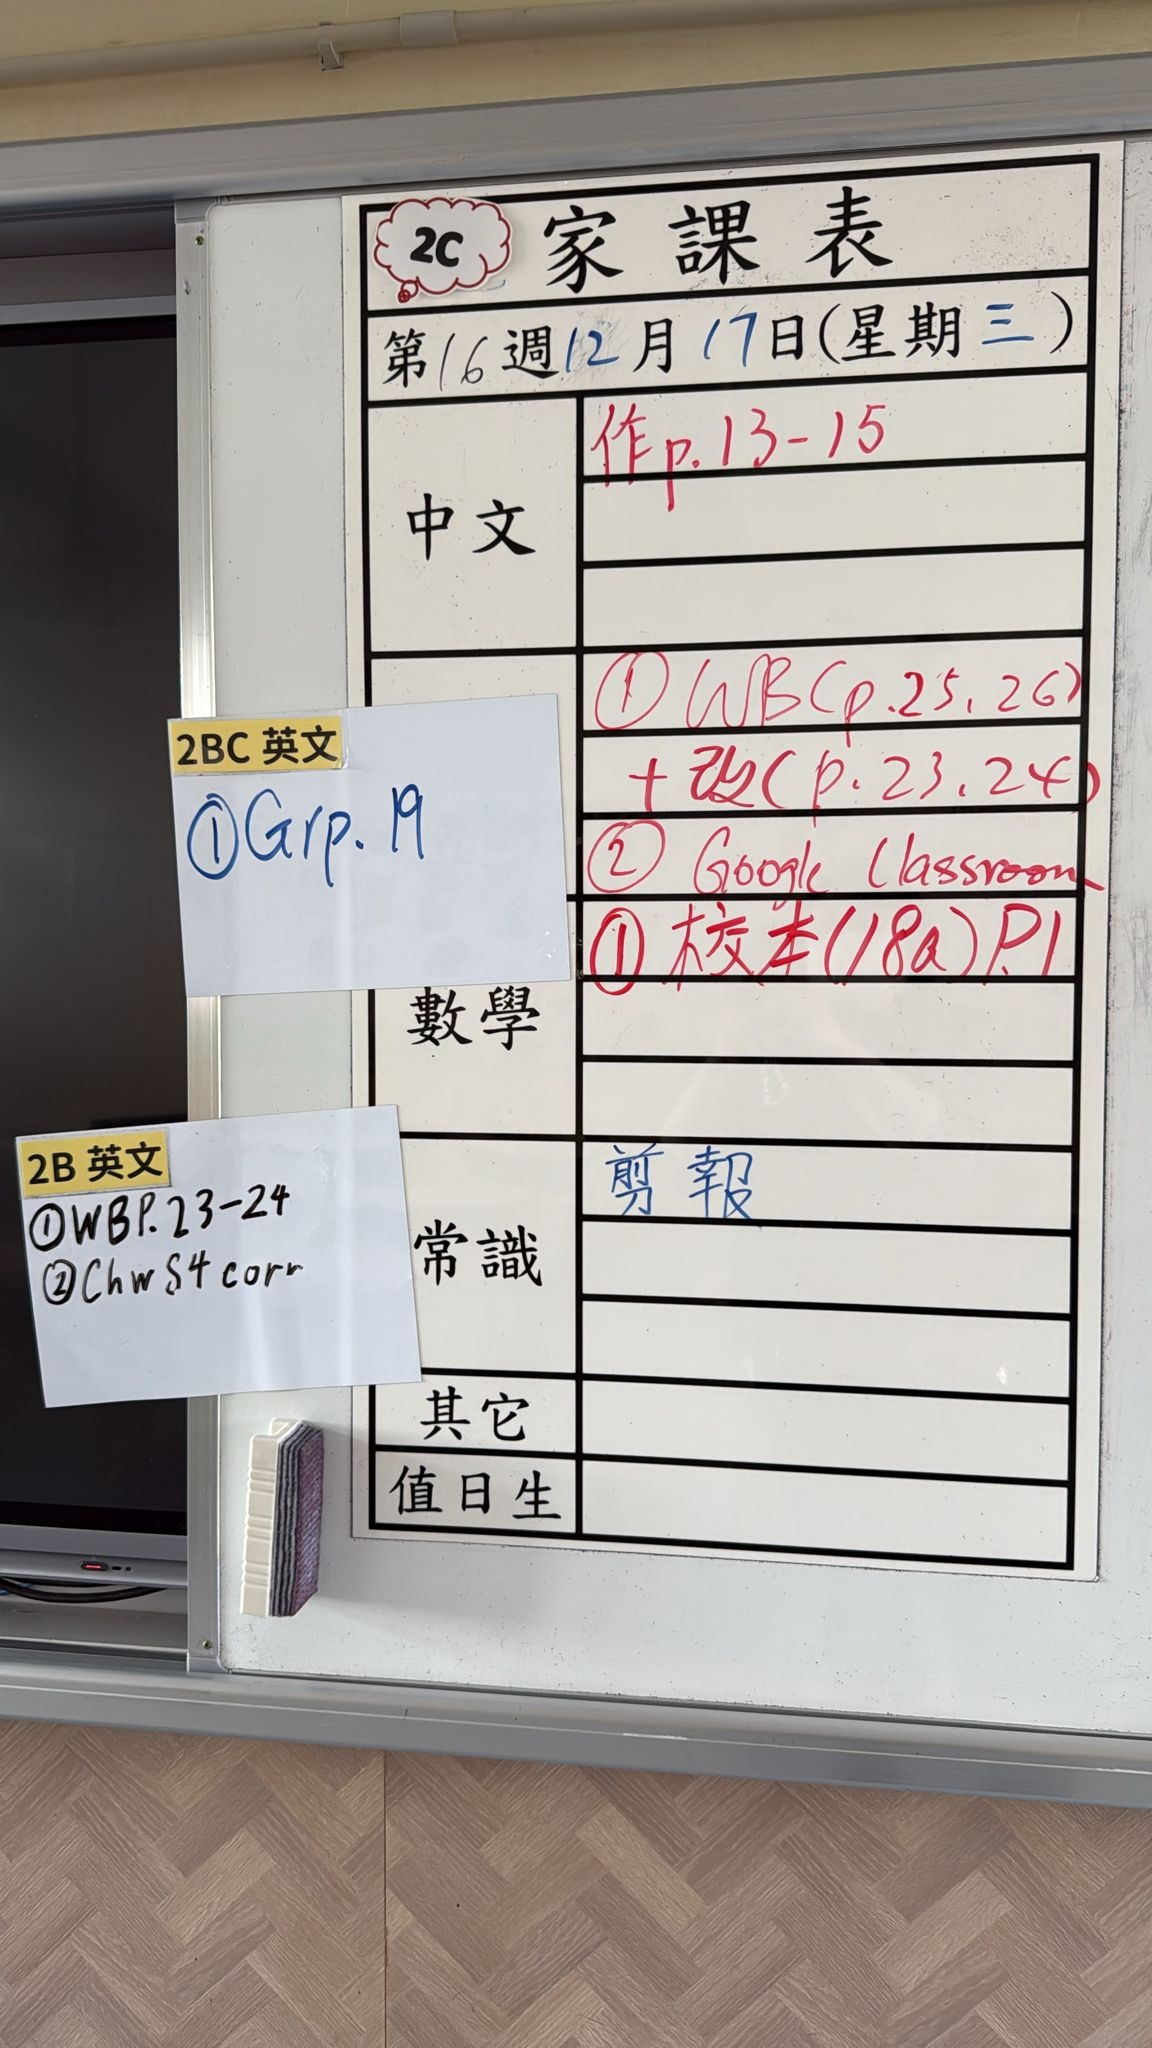 2C 家課表
第16週12月17日(星期三)
中文
作p.13-15
① WB(p.25,26)
+改(p.23,24)
② Google Classroom
2BC 英文
①Grp.19
數學
① 校本(18a)P.1
2B 英文
①WBP.23-24
②ChwS4 corr
常識
剪報
其它
值日生